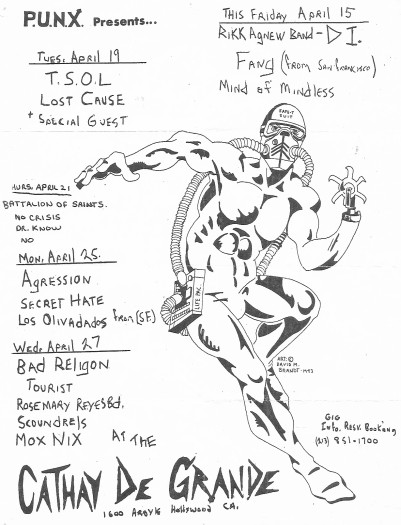 P.U.N.X. Presents...
THIS FRIDAY APRIL 15
RIKK AGNEW BAND - D I.
FANG (FROM SAN FRANCISCO)
MIND OF MINDLESS
TUES. APRIL 19
T.S.O.L
LOST CAUSE
+ SPECIAL GUEST
HURS. APRIL 21
BATTALION OF SAINTS.
NO CRISIS
DR. KNOW
NO
MON. APRIL 25.
AGRESSION
SECRET HATE
LOS OLIVADADOS FROM (S.F.)
WED. APRIL 27
BAD RELIGON
TOURIST
ROSEMARY REYES Bd.
SCOUNDRELS
MOX NIX
AT THE
CATHAY DE GRANDE
1600 ARGYLE HOLLYWOOD CA.
LIFE PAC
ART: ©
DAVID M.
BRANDT - 1983
GIG
Info. Resv. Booking
(213) 851-1700